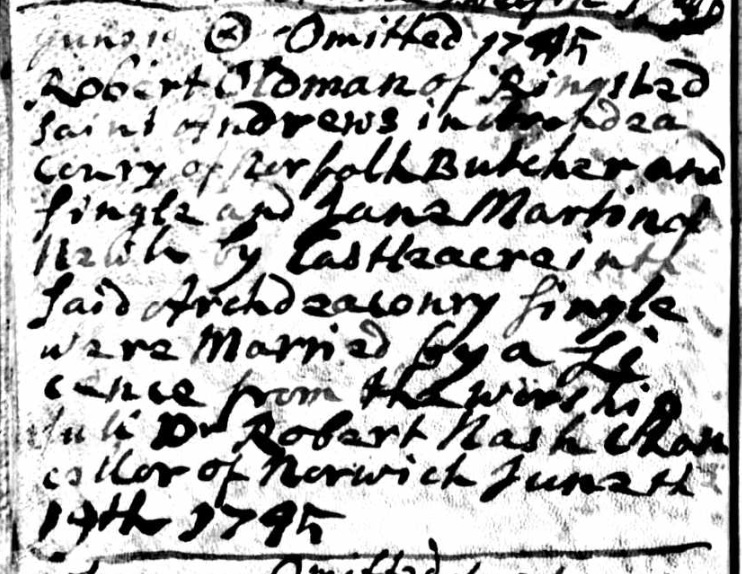 Omitted 1745
Robert Oldman of Ringsted
Saint Andrews in Archdea
conry of Norfolk Butcher and
Single and Jane Martin of
by Castleacre in th
said Archdeaconry single
were Married by a Li
cence from the worship
full Dr Robert Nash Chan
cellor of Norwich June th
19th 1745
Omitted